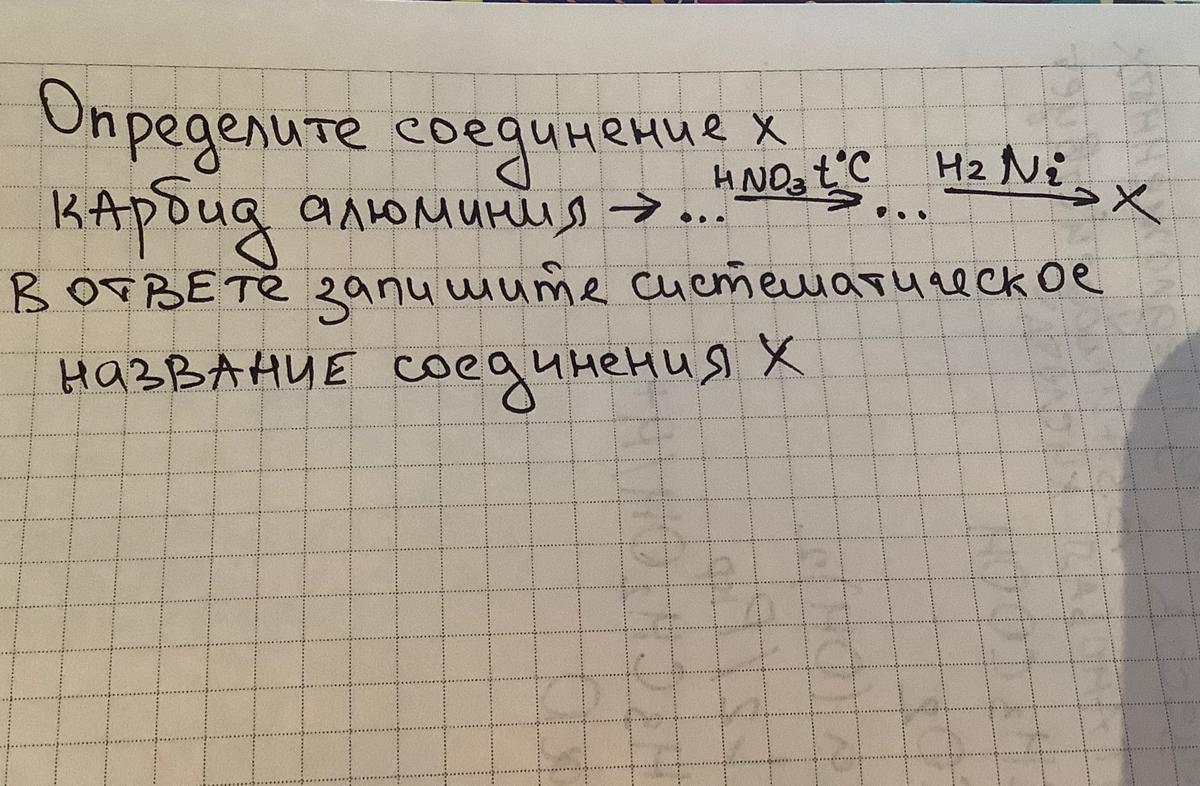 Определите соединение х
карбид алюминия → ... HNO3 t°C → ... H2 Ni → X
в ответе запишите систематическое
название соединения X